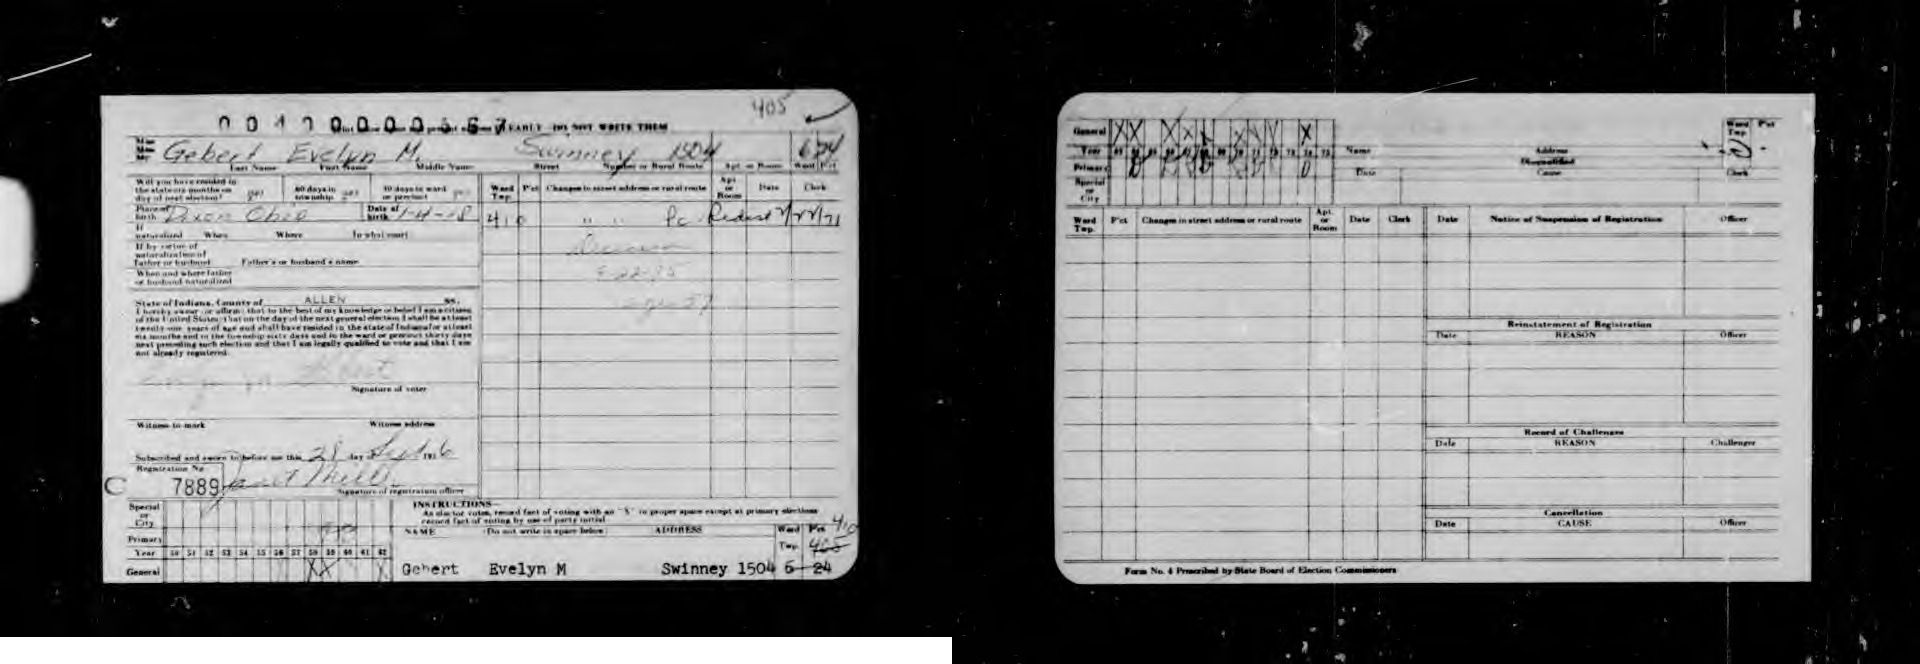 405
WRITE THEM
Gebert Evelyn M. Swinney 1504 6 24
Last Name First Name Middle Name Street Number or Rural Route Apt. or Room Ward Pct
Will you have resided in
the state six months on
day of next election? yes 60 days in
township yes 30 days in ward
or precinct yes
Ward
Twp. P'ct Changes in street address or rural route Apt.
or
Room Date Clerk
Place of
birth Dixon Ohio Date of
birth 1-4-18
410 " " Pc Redist
If
naturalized When Where In what court
If by virtue of
naturalization of
father or husband Father's or husband's name
When and where father
or husband naturalized
State of Indiana, County of ALLEN SS.
I hereby swear (or affirm) that to the best of my knowledge or belief I am a citizen
of the United States; that on the day of the next general election I shall be at least
twenty-one years of age and shall have resided in the state of Indiana for at least
six months and in the township sixty days and in the ward or precinct thirty days
next preceding such election and that I am legally qualified to vote and that I am
not already registered.
Signature of voter
Witness to mark Witness address
Subscribed and sworn to before me this 28 day Sept
Registration No
C 7889
Signature of registration officer
Special
or
City
Primary
Year 50 51 52 53 54 55 56 57 58 59 60 61 62
General X X X
INSTRUCTIONS—
As elector votes, record fact of voting with an "X" in proper space except at primary elections
record fact of voting by use of party initial
NAME (Do not write in space below) ADDRESS Ward
Twp. Pct 410
405
Gebert Evelyn M Swinney 1504 6 24
General X X X X X
Year
Primary
Special
or
City
Name Address
Disqualified
Date Cause Clerk
Ward
Twp. P'ct
Ward
Twp. P'ct Changes in street address or rural route Apt.
or
Room Date Clerk
Date Notice of Suspension of Registration Officer
Reinstatement of Registration
Date REASON Officer
Record of Challenges
Date REASON Challenger
Cancellation
Date CAUSE Officer
Form No. 4 Prescribed by State Board of Election Commissioners